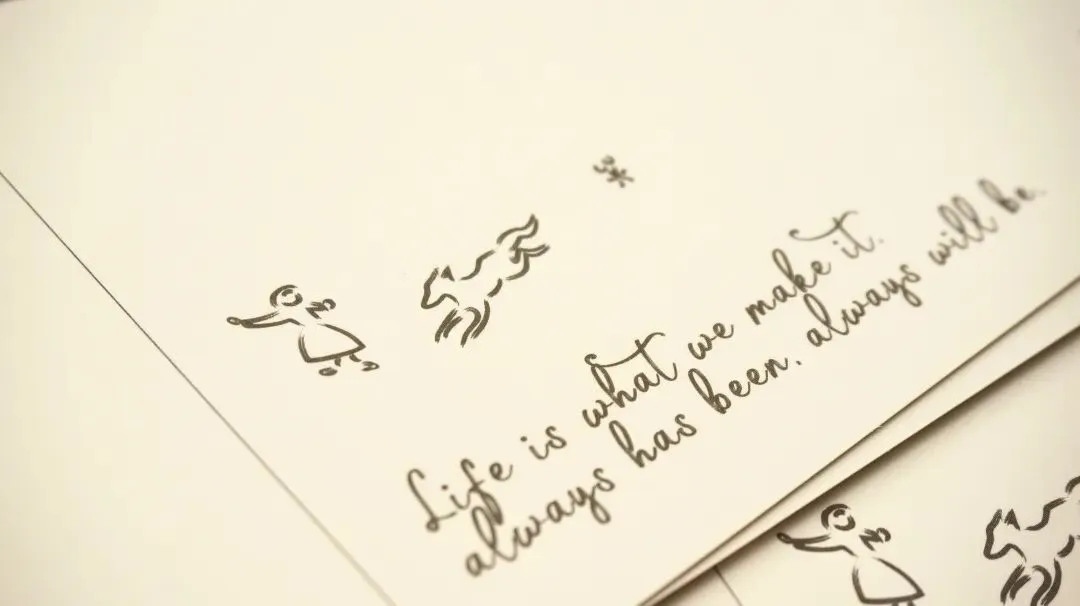 Life is what we make it.
always has been. always will be.